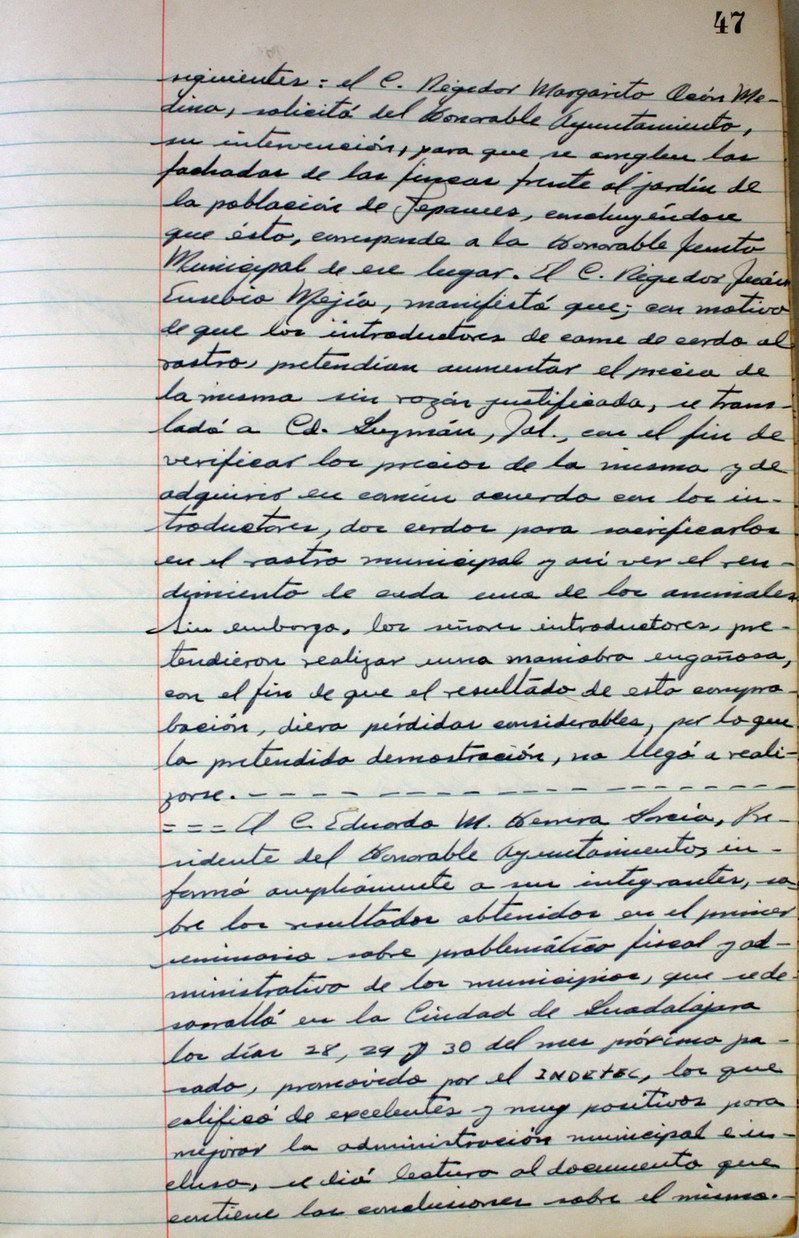 47
siguientes: el C. Regidor Margarito Ocón Me-
dina, solicitó del Honorable Ayuntamiento,
su intervención, para que se arreglen las
fachadas de las fincas frente al jardín de
la población de Tepames, concluyéndose
que ésto, corresponde a la Honorable Junta
Municipal de ese lugar. El C. Regidor Juán
Eusebio Mejía, manifestó que; con motivo
de que los introductores de carne de cerdo al
rastro, pretendían aumentar el precio de
la misma sin razón justificada, se trans-
ladó a Cd. Guzmán, Jal., con el fin de
verificar los precios de la misma y de
adquirir en común acuerdo con los in-
troductores, dos cerdos para sacrificarlos
en el rastro municipal y así ver el ren-
dimiento de cada uno de los animales.
Sin embargo, los señores introductores, pre-
tendieron realizar una maniobra engañosa,
con el fin de que el resultado de esta compro-
bación, diera pérdidas considerables, por lo que
la pretendida demostración, no llegó a reali-
zarse. - - - - - - - - - - - - - - -
= = = El C. Eduardo M. Herrera García, Pre-
sidente del Honorable Ayuntamiento, in-
formó ampliámente a sus integrantes, so-
bre los resultados obtenidos en el primer
seminario sobre problemática fiscal y ad-
ministrativa de los municipios, que se de-
sarrolló en la Ciudad de Guadalajara
los días 28, 29 y 30 del mes próximo pa-
sado, promovido por el INDETEC, los que
calificó de excelentes y muy positivos para
mejorar la administración municipal e in-
cluso, se dió lectura al documento que
contiene las conclusiones sobre el mismo.-